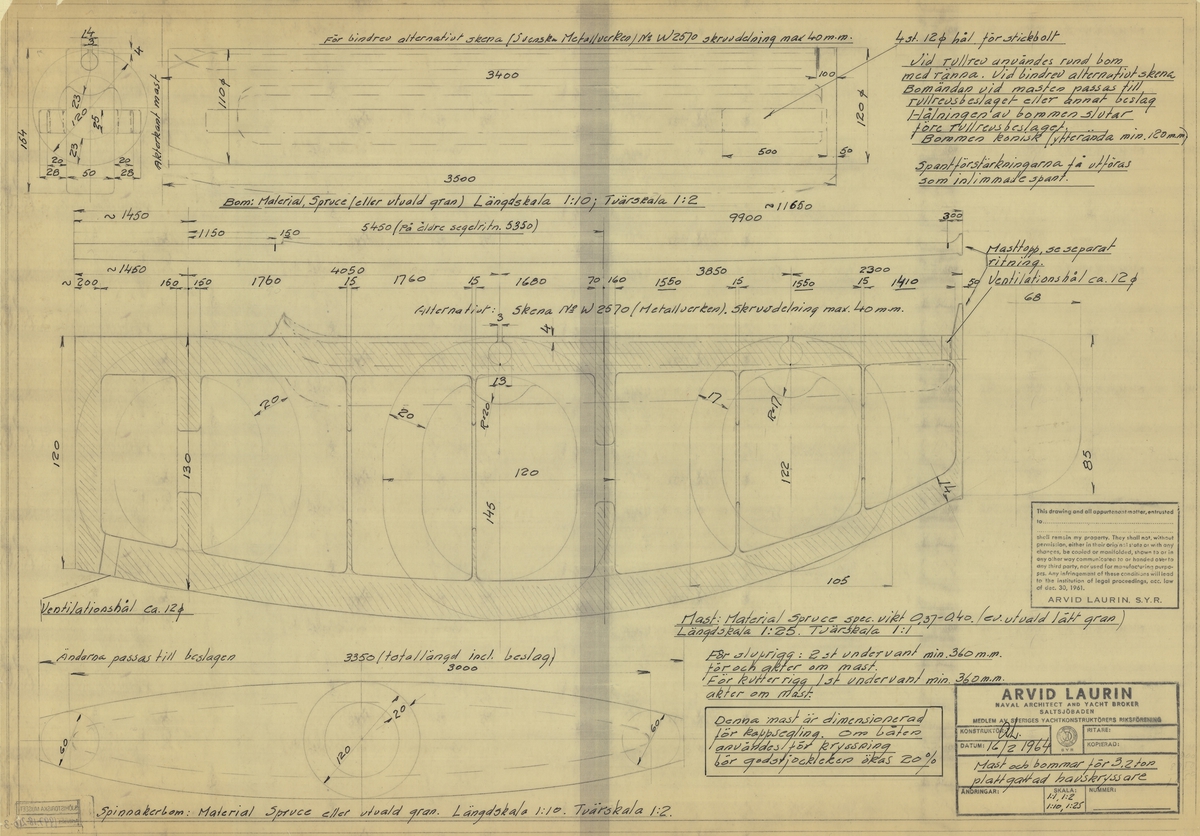 För bindrev alternativt skena (Svenska Metallverken) No W 2570 skruvdelning max 40 m.m.
4 st. 12 ø hål för stickbolt
Vid rullrev användes rund bom
med ränna. Vid bindrev alternativt skena
Bomändan vid masten passas till
rullrevsbeslaget eller annat beslag
Hålningen av bommen slutar
före rullrevsbeslaget.
Bommen konisk (ytterända min. 120 mm)
Spantförstärkningarna få utföras
som inlimmade spant.
14
3
4
164
23
20
25
23
20
20
28
50
28
Akterkant mast
110 ø
3400
100
120 ø
500
50
3500
Bom: Material, Spruce (eller utvald gran) Längdskala 1:10; Tvärskala 1:2
~ 1450
~ 11650
9900
300
1150
150
5450 (På äldre segelritn. 5350)
Masttopp, se separat
ritning.
Ventilationshål ca. 12 ø
~1450
4050
3850
2300
~ 200
150
150
1760
15
1760
15
1680
70
160
1550
15
1550
15
1410
50
68
Alternativt: Skena No W 2570 (Metallverken). Skruvdelning max. 40 m.m.
3
4
13
R=20
R=17
20
20
17
120
130
120
145
122
14
85
105
Ventilationshål ca. 12 ø
This drawing and all appartenant matter, entrusted
to
shall remain my property. They shall not, without
permission, either in their original state or with any
changes, be copied or manifolded, shown to or in
any other way communicated to or handed over to
any third party, nor used for manufacturing purpo-
ses. Any infringement of these conditions will lead
to the institution of legal proceedings, acc. law
of dec. 30, 1961.
ARVID LAURIN. S.Y.R.
Mast: Material Spruce spec. vikt 0,37-0,40. (ev. utvald lätt gran)
Längdskala 1:25. Tvärskala 1:1
För sluprigg: 2 st undervant min. 360 m.m.
för och akter om mast.
För kutterrigg 1 st undervant min. 360 m.m.
akter om mast.
Denna mast är dimensionerad
för kappsegling. Om båten
användes för kryssning
bör godstjockleken ökas 20 %
Ändarna passas till beslagen
3350 (totallängd incl. beslag)
3000
60
120
20
60
Spinnakerbom: Material Spruce eller utvald gran. Längdskala 1:10. Tvärskala 1:2.
ARVID LAURIN
NAVAL ARCHITECT AND YACHT BROKER
SALTSJÖBADEN
MEDLEM AV SVERIGES YACHTKONSTRUKTÖRERS RIKSFÖRENING
KONSTRUKTÖR:
RITARE:
DATUM: 16/2 1964
KOPIERAD:
Mast och bommar för 3,2 ton
plattgattad havskryssare
ÄNDRINGAR:
SKALA:
1:1, 1:2
1:10, 1:25
NUMMER: